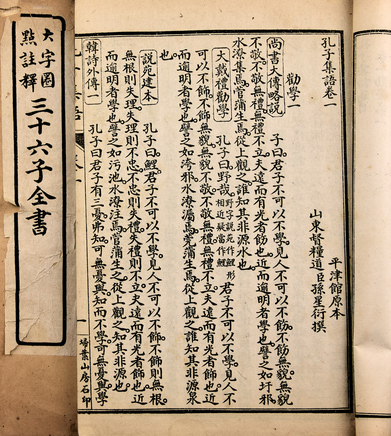 孔子集語卷一
平津館原本
山東督糧道臣孫星衍撰
勸學一
尚書大傳略說 子曰君子不可以不學見人不可以不飾不飾無貌無貌
不敬不敬無禮無禮不立夫遠而有光者飾也近而逾明者學也譬之如圩邪
水潦集焉菅蒲生焉從上觀之誰知其非源水也
大戴禮勸學 孔子曰野哉野字說苑作鯉形相近疑當作鯉君子不可以不學見人不
可以不飾不飾無貌無貌不敬不敬無禮無禮不立夫遠而有光者飾也近
而逾明者學也譬之如洿邪水潦灟焉莞蒲生焉從上觀之誰知其非源泉
也
說苑建本 孔子曰鯉君子不可以不學見人不可以不飾不飾則無根
無根則失理失理則不忠不忠則失禮失禮則不立夫遠而有光者飾也近
而逾明者學也譬之如污池水潦注焉菅蒲生之從上觀之知其非源也
韓詩外傳一 孔子曰君子有三憂弗知可無憂與知而不學可無憂與學
一
掃葉山房石印
大字圈點註釋
三十六子全書